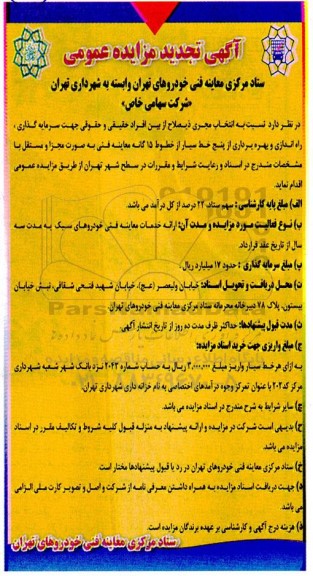 آگهی تجدید مزایده عمومی
ستاد مرکزی معاینه فنی خودروهای تهران وابسته به شهرداری تهران
«شرکت سهامی خاص»
در نظر دارد نسبت به انتخاب مجری ذیصلاح از بین افراد حقیقی و حقوقی جهت سرمایه گذاری ،
راه اندازی و بهره برداری از پنج خط سیار از خطوط ۱۵ گانه معاینه فنی به صورت مجزا و مستقل با
مشخصات مندرج در اسناد و رعایت شرایط و مقررات در سطح شهر تهران از طریق مزایده عمومی
اقدام نماید.
الف) مبلغ پایه کارشناسی: سهم ستاد، ۲۲ درصد از کل درآمد می باشد.
ب) نوع فعالیت مورد مزایده و مدت آن: ارائه خدمات معاینه فنی خودروهای سبک به مدت سه
سال از تاریخ عقد قرارداد.
پ) مبلغ سرمایه گذاری : حدود ۱۷ میلیارد ریال.
ت) محل دریافت و تحویل اسناد: خیابان ولیعصر (عج)، خیابان شهید فتحی شقاقی، نبش خیابان
بیستون، پلاک ۷۸ دبیرخانه محرمانه ستاد مرکزی معاینه فنی خودروهای تهران
ث) مدت قبول پیشنهادها: حداکثر ظرف مدت ده روز از تاریخ انتشار آگهی.
ج) مبلغ واریزی جهت خرید اسناد مزایده:
به ازای هر خط سیار واریز مبلغ ۲،۰۰۰،۰۰۰ ریال به حساب شماره ۲۰۲۳ نزد بانک شهر شعبه شهرداری
مرکز کد ۲۰۲ با عنوان تمرکز وجوه درآمدهای اختصاصی به نام خزانه داری شهرداری تهران.
چ) سایر شرایط به شرح مندرج در اسناد مزایده می باشد.
ح) بدیهی است شرکت در مزایده و ارائه پیشنهاد به منزله قبول کلیه شروط و تکالیف مقرر در اسناد
مزایده می باشد.
خ) ستاد مرکزی معاینه فنی خودروهای تهران در رد یا قبول پیشنهادها مختار است
د) جهت دریافت اسناد مزایده به همراه داشتن معرفی نامه از شرکت و اصل و تصویر کارت ملی الزامی
می باشد.
ذ) هزینه درج آگهی و کارشناسی بر عهده برندگان مزایده است.
ستاد مرکزی معاینه فنی خودروهای تهران